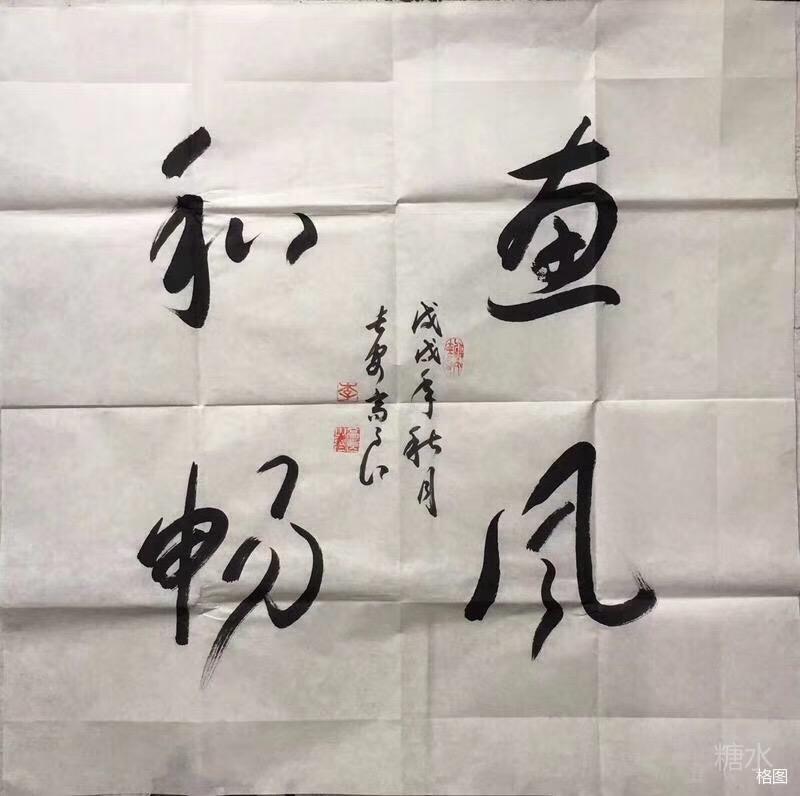 惠风
和畅
戊戌年秋月
长安高
糖水
格图